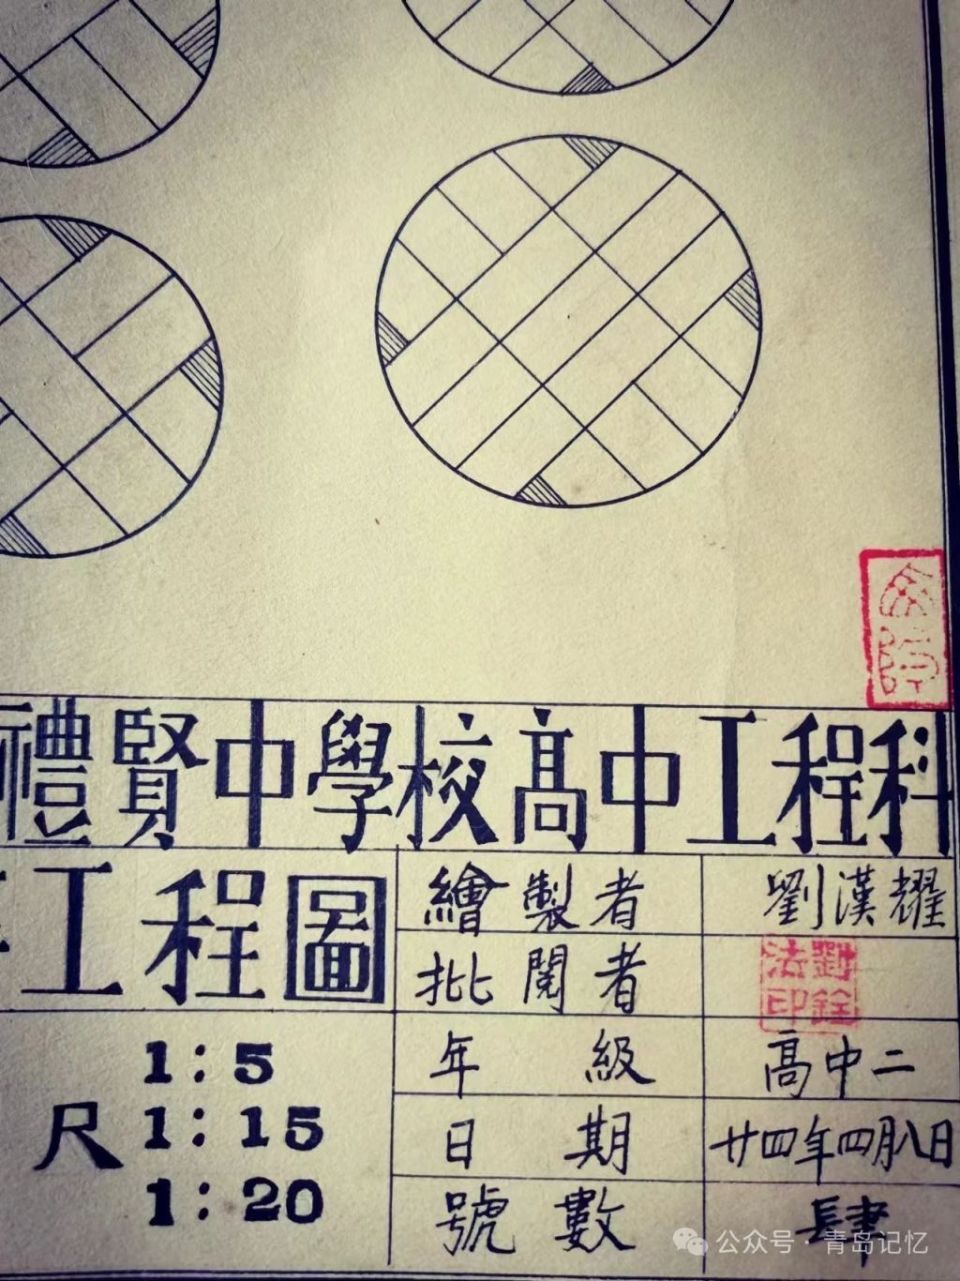 禮賢中學校高中工程科
工程圖
繪製者 劉漢耀
批閱者
劉銓法印
年級 高中二
日期 廿四年四月八日
號數 肆
尺
1:5
1:15
1:20
公众号·青岛记忆